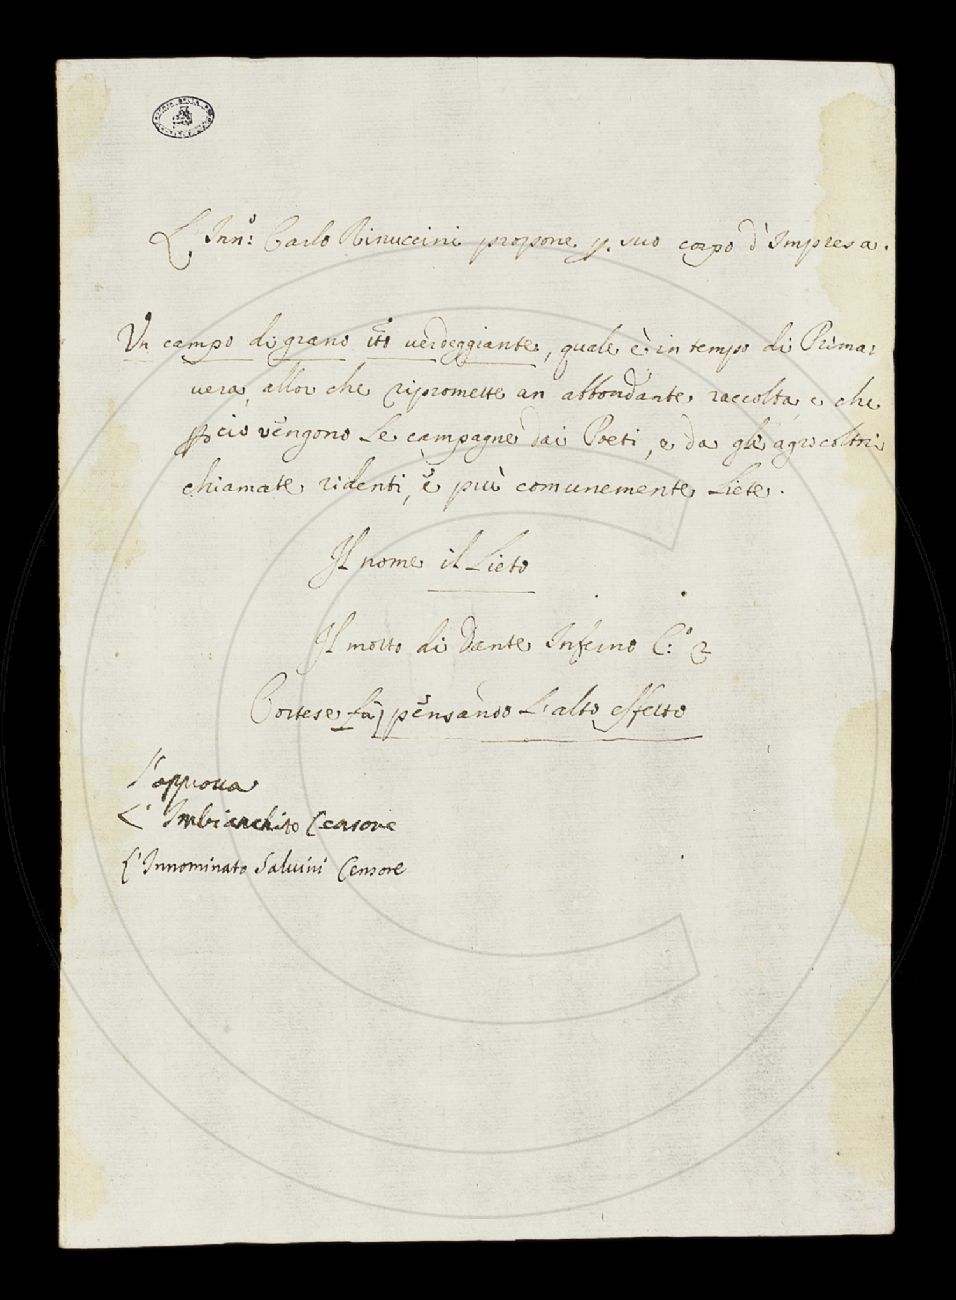 L'Inn:º Carlo Rinuccini propone p. suo corpo d'Impresa.
Un campo di grano tt̃o verdeggiante, quale è in tempo di Prima-
vera, allor che ripromette un abbondante raccolta, e che
p ciò vengono le campagne dai Poeti, e da gli agricoltri
chiamate ridenti, e più comunemente Liete.
Il nome il Lieto
Il motto di Dante Inferno C:º 2
Cortese fú, pensando L'alto effetto
S'approva
L'Imbianchito Censore
L'Innominato Salvini Censore